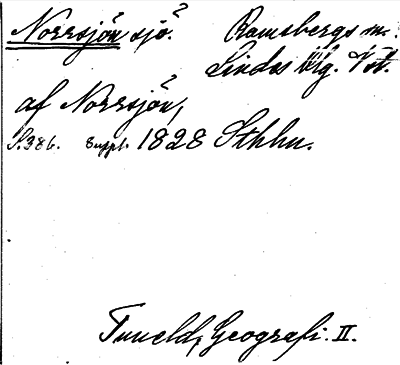 Norrsjön sjö.? Ramsbergs sn.
Lindes bg. Vstm.
af Norrsjön,?
S. 386. Suppl. 1828 Sthlm.
Tuneld, Geografi. II.